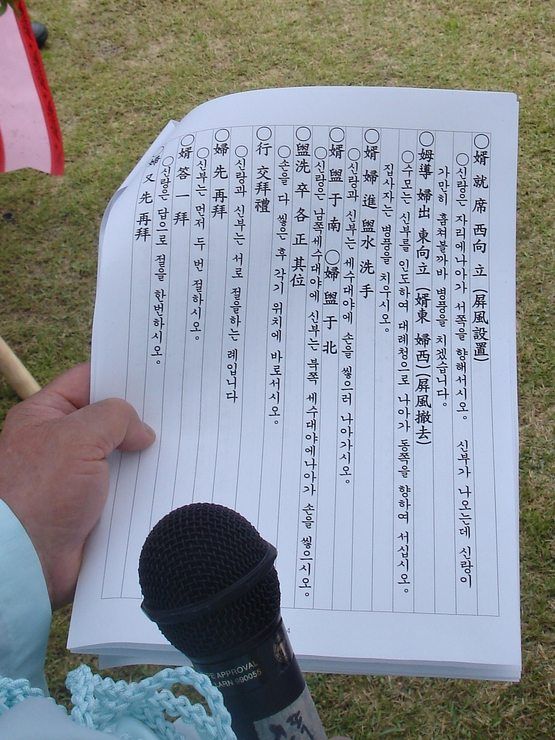 ○婿就席 西向 立 (屛風設置)
○신랑은 자리에나아가 서쪽을 향해서시오. 신부가 나오는데 신랑이
가만히 훔쳐볼까바 병풍을 치겠습니다.
○姆導 婦出 東向立 (婿東 婦西) (屛風撤去)
○수모는 신부를 인도하여 대례청으로 나아가 동쪽을 향하여 서십시오.
집사자는 병풍을 치우시오.
○婿 婦 進 盥水 洗 手
○신랑과 신부는 세수대야에 손을 씻으러 나아가시오.
○婿 盥 于 南 ○婦 盥 于 北
○신랑은 남쪽세수대야에 신부는 북쪽 세수대야에나아가 손을 씿으시오.
○盥洗 卒 各 正 其位
○손을 다 씿은 후 각기 위치에 바로서시오.
○行 交拜禮
○신랑과 신부는 서로 절을하는 례입니다
○婦 先 再拜
○신부는 먼저 두 번 절하시오.
○婿 答 一 拜
○신랑은 답으로 절을 한번하시오.
婦 又 先 再拜
APPROVAL